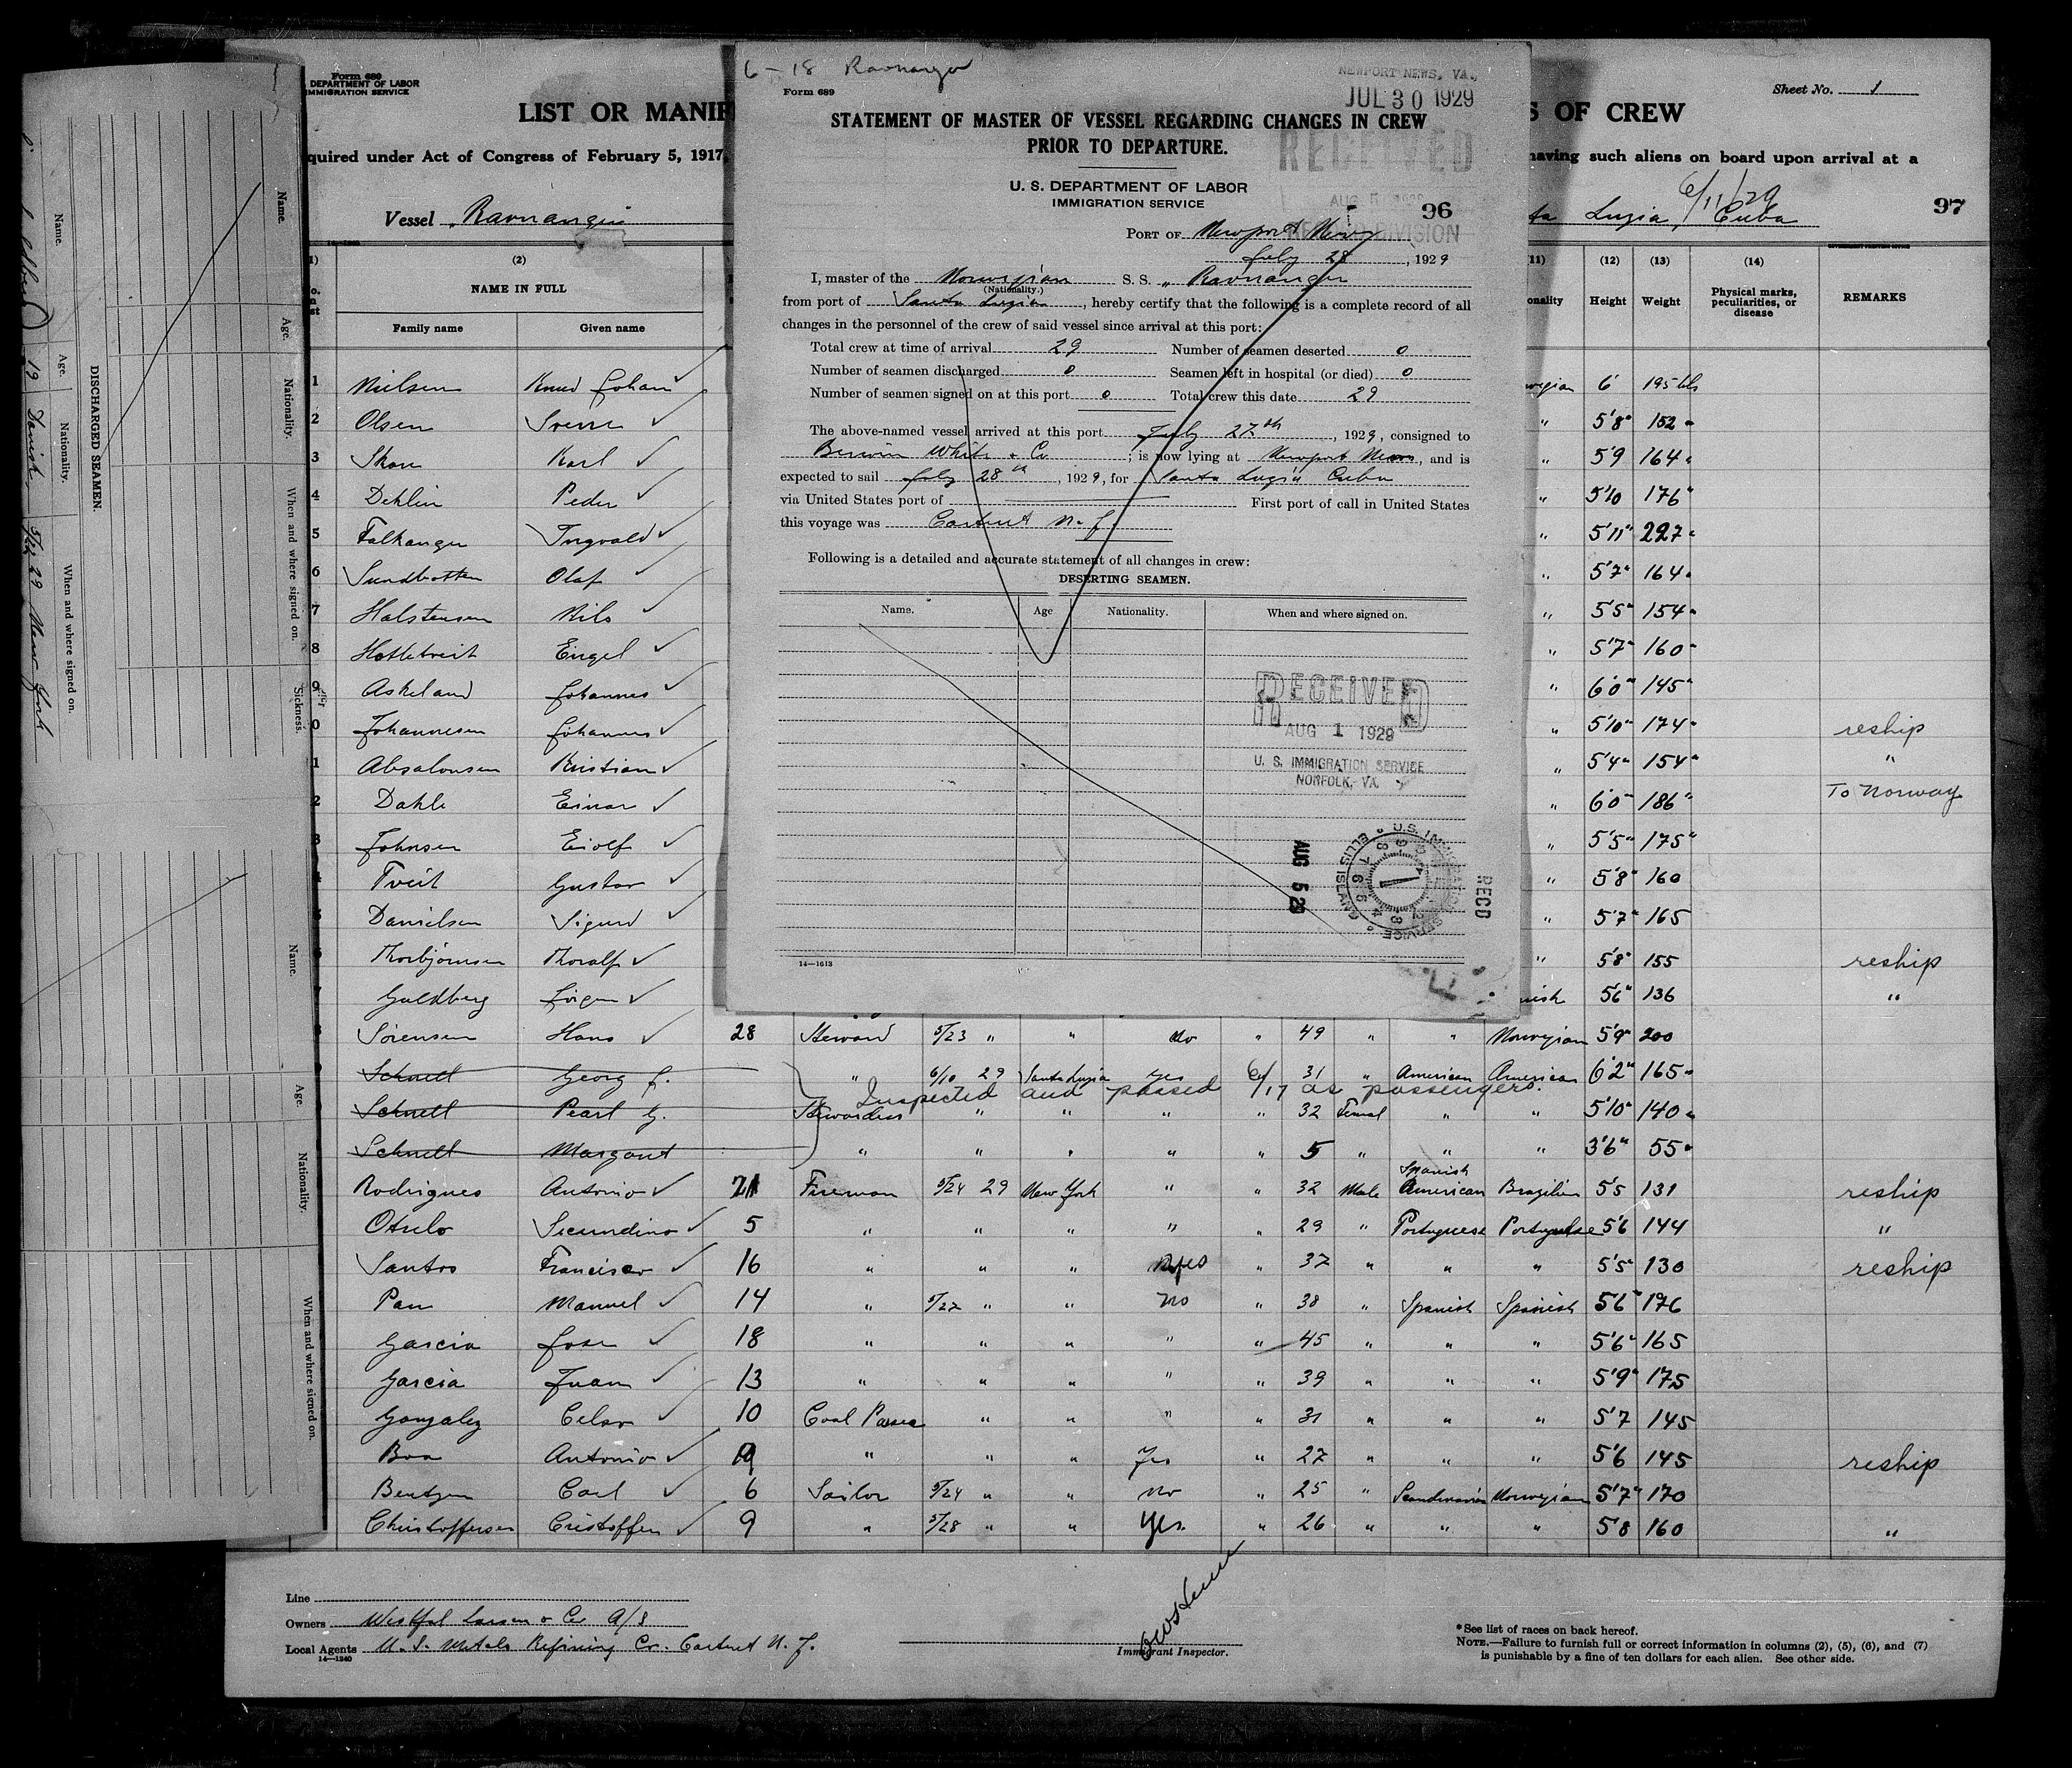 Form 689
DEPARTMENT OF LABOR
IMMIGRATION SERVICE
LIST OR MANIF
quired under Act of Congress of February 5, 1917,
Vessel Ravnanger
Sheet No. 1
S OF CREW
having such aliens on board upon arrival at a
6/11/29
ta Luzia, Cuba
97
6-18 Ravnanger
Form 689
NEWPORT NEWS, VA.,
JUL 30 1929
STATEMENT OF MASTER OF VESSEL REGARDING CHANGES IN CREW
PRIOR TO DEPARTURE.
RECEIVED
U. S. DEPARTMENT OF LABOR
IMMIGRATION SERVICE
AUG 5 1929
96
DIVISION
PORT OF Newport News
July 28, 1929
I, master of the Norwegian S. S. " Ravnanger
(Nationality.)
from port of Santa Lugia, hereby certify that the following is a complete record of all
changes in the personnel of the crew of said vessel since arrival at this port:
Total crew at time of arrival 29 Number of seamen deserted 0
Number of seamen discharged 0 Seamen left in hospital (or died) 0
Number of seamen signed on at this port 0 Total crew this date 29
The above-named vessel arrived at this port July 27th, 1929, consigned to
Berwin White & Co; is now lying at Newport News, and is
expected to sail July 28th, 1929, for Santa Lugia Cuba
via United States port of First port of call in United States
this voyage was Carteret N. J.
Following is a detailed and accurate statement of all changes in crew:
DESERTING SEAMEN.
Name. Age Nationality. When and where signed on.
RECEIVED
AUG 1 1929
U. S. IMMIGRATION SERVICE
NORFOLK, VA.
AUG 5 29
U.S. IMMIGRATION SERVICE ELLIS ISLAND
RECD
14—1613
(2) (11) (12) (13) (14)
NAME IN FULL
Family name Given name
onality Height Weight Physical marks, peculiarities, or disease REMARKS
1 Nielsen Knud Johan wegian 6 195 lbs
2 Olsen Sverre " 5'8" 152 "
3 Skou Karl " 5'9 164 "
4 Dehlin Peder " 5'10 176 "
5 Falkanger Ingvald " 5'11" 227 "
6 Sundbotten Olaf " 5'7" 164 "
7 Halstensen Nils " 5'5" 154 "
8 Hatletveit Engel " 5'7" 160 "
9 Askeland Johannes " 6'0" 145 "
0 Johannesen Johannes " 5'10" 174 " reship
1 Absalonsen Kristian " 5'4" 154 " "
2 Dahle Einar " 6'0" 186 " To Norway
3 Johnsen Eiolf " 5'5" 175 "
Tveit Gustav " 5'8" 160
Danielsen Sigurd " 5'7" 165
Thorbjörnsen Thoralf " 5'8" 155 reship
Guldberg Jörgen nish 5'6" 136 "
Sörensen Hans 28 Steward 5/23 " " No " 49 " " Norwegian 5'9" 200
Schnell Georg J. " 6/10 29 Santa Lugia yes " 31 " American American 6'2" 165 "
Inspected and passed 6/17 as passengers.
Schnell Pearl G. Stewardess " " " " 32 Femal " " 5'10" 140 "
Schnell Margaret " " " " " 5 " " " 3'6" 55 "
Rodrigues Antonio 21 Fireman 5/24 29 New York " " 32 Male Spanish American Brazilien 5'5 131 reship
Otrelo Secundino 5 " " " " " 29 " Portuguese Portuguese 5'6 144 "
Santos Francisco 16 " " " yes " 37 " " " 5'5" 130 reship
Pan Manuel 14 " 5/27 " " No " 38 " Spanish Spanish 5'6" 176
Garcia Jose 18 " " " " " 45 " " " 5'6" 165
Garcia Juan 13 " " " " " 39 " " " 5'9" 175
Gonzalez Celso 10 Coal Passer " " " " 31 " " " 5'7 145
Boo Antonio 19 " " " Yes " 27 " " " 5'6 145 reship
Bentzen Carl 6 Sailor 5/24 " " No " 25 " Scandinavian Norwegian 5'7" 170
Christoffersen Cristoffer 9 " 5/28 " " Yes. " 26 " " " 5'8 160 "
Line
Owners Westfal Larsen & Co A/S
Local Agents U. S. Metals Refining Co. Carteret N. J.
14—1240
Immigrant Inspector.
*See list of races on back hereof.
NOTE.—Failure to furnish full or correct information in columns (2), (5), (6), and (7)
is punishable by a fine of ten dollars for each alien. See other side.
DISCHARGED SEAMEN.
Name. Age. Nationality. When and where signed on.
19 Danish 29 New York
Name. Age. Nationality. When and where signed on. Sickness.
Name. Age. Nationality. When and where signed on.